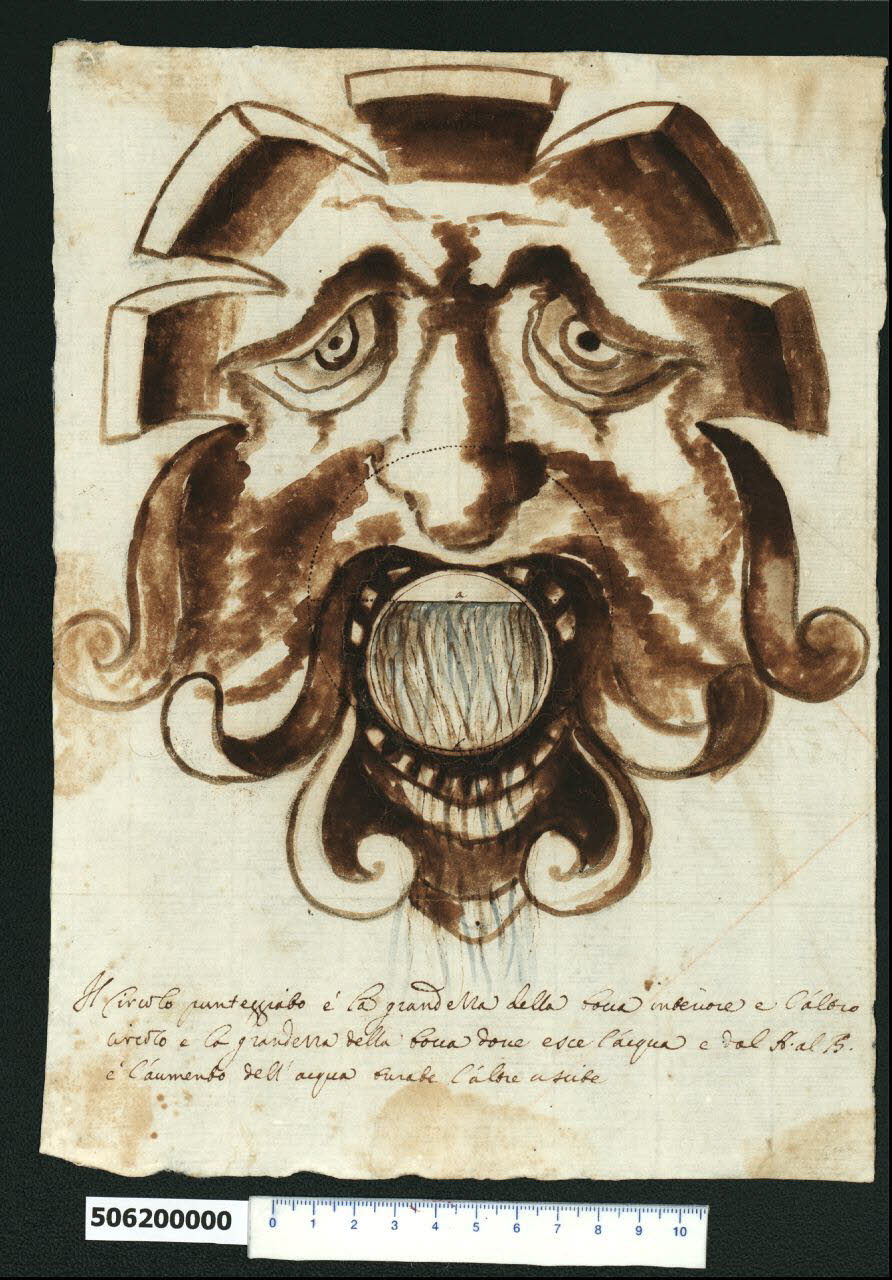 a
Il circolo puntegiato é la grandezza della boca interiore e l'altro
circolo e la grandezza della boca doue esce l'acqua e dal A. al B.
é l'aumento dell' acqua l'altre uscite
506200000
0 1 2 3 4 5 6 7 8 9 10